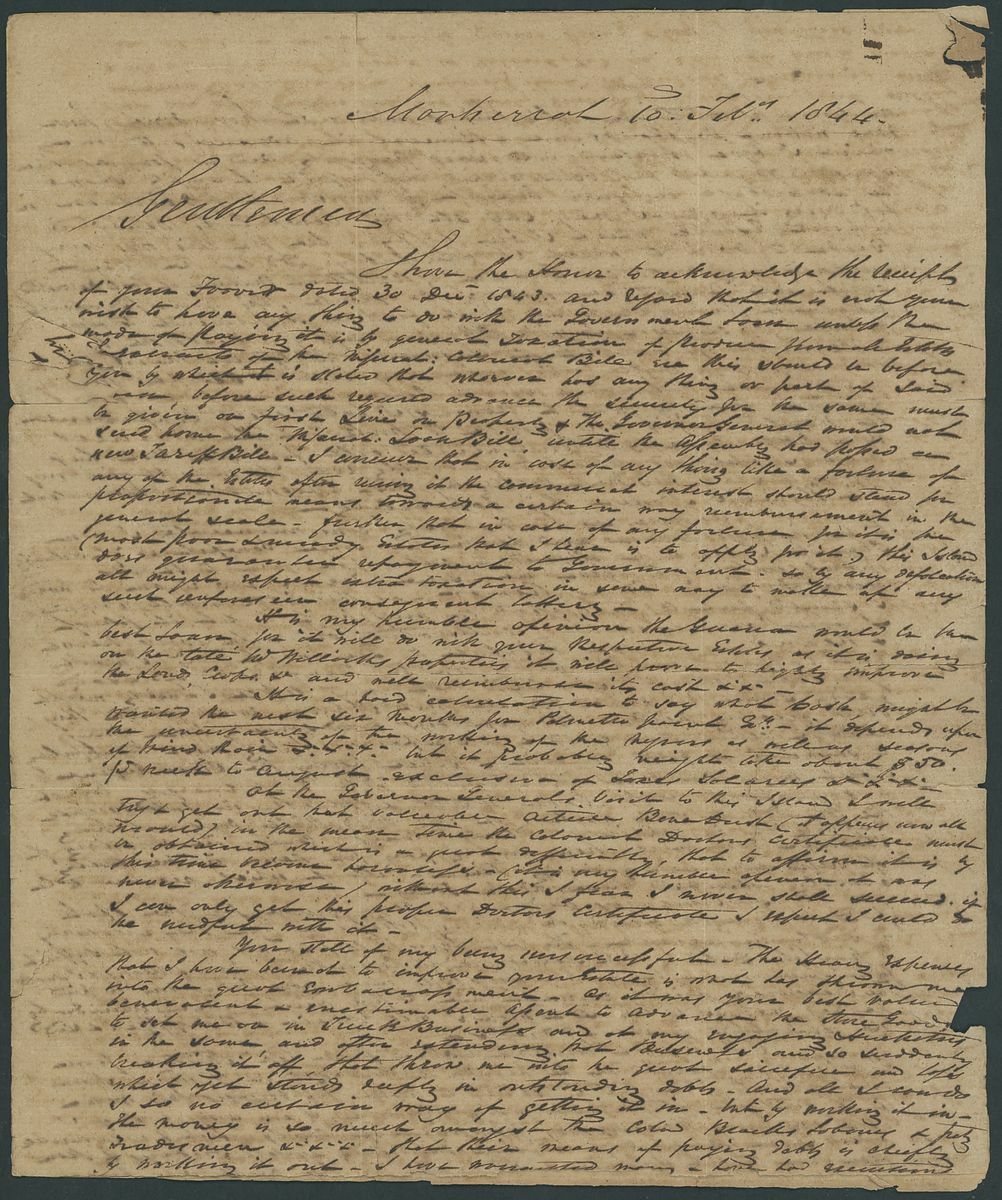 Montserrat 10. Feby. 1844.
Gentlemen
I have the Honor to acknowledge the receipt
of your Favor dated 30 Decr 1843. and regard that it is not your
wish to have any thing to do with the Government Loan unless the
mode of Paying it is by general Taxation of Produce from all Estates
of the Imperial Bill this should be before
you by which it is stated that whoever has any thing or part of said
Loan, before such required advance the security for the same must
be given on first Lien on Property & the Governor General would not
send home the Imperial Loan Bill until the Assembly had passed a
new Tariff Bill - I conceive that in case of any thing like a failure of
any of the Estates after using it the commercial interest should stand for
proportionate means towards a certain way reimbursement in the
general scale - further that in case of any for it is the
(most poor & needy Estates that I hear is to apply for it,) this Island
does guarantee repayment to Government. so by any defalcation
all might expect extra taxation in some way to make up any
such
It is my humble opinion the Guano would be the
best Loan for it will do with your Respective Estates as it is doing
on the late Mr Willocks properties it will prove to highly improve
the Land, Crops &c and will reimburse its cost &c &c -
It is a hard calculation to say what Cash might be
wanted the next six months for Palmetto Point Et. - it depends upon
the uncertainty of the working of the Negroes as well as seasons
of Wind Rain &c &c - but it Probably might take about $50.
P week to August - exclusive of Taxes Salaries &c &c -
At the Governor Generals visit to this Island I will
try & get out that valuable (it appears now all
would) in the mean time the Colonial Doctors Certificate must
be obtained which is a great difficulty, that to affirm it is by
this time become - (it is my humble opinion it was
never otherwise) without this I fear I never shall succeed. if
I can only get this proper Doctors Certificate I expect I could do
the needful with it -
You state of my being unsuccessful - The Heavy Expenses
that I have been at to improve your Estate is what has thrown me
into the great Embarrassment - as it was your best value
benevolent & inestimable Agent to advance the Store Goods
to set me on in Business and at my engaging Hucksters
in the same and after extending that Business and so suddenly
breaking it off, that threw me into the great sacrifice and loss
which yet stands deeply in outstanding debts - And all I could
I see no certain way of getting it in - but by working it in -
The money is so much amongst the Cold Blacks Labourers & petty
Tradesmen &c &c - that their means of paying debts is chiefly
by working it out - I have many - have had